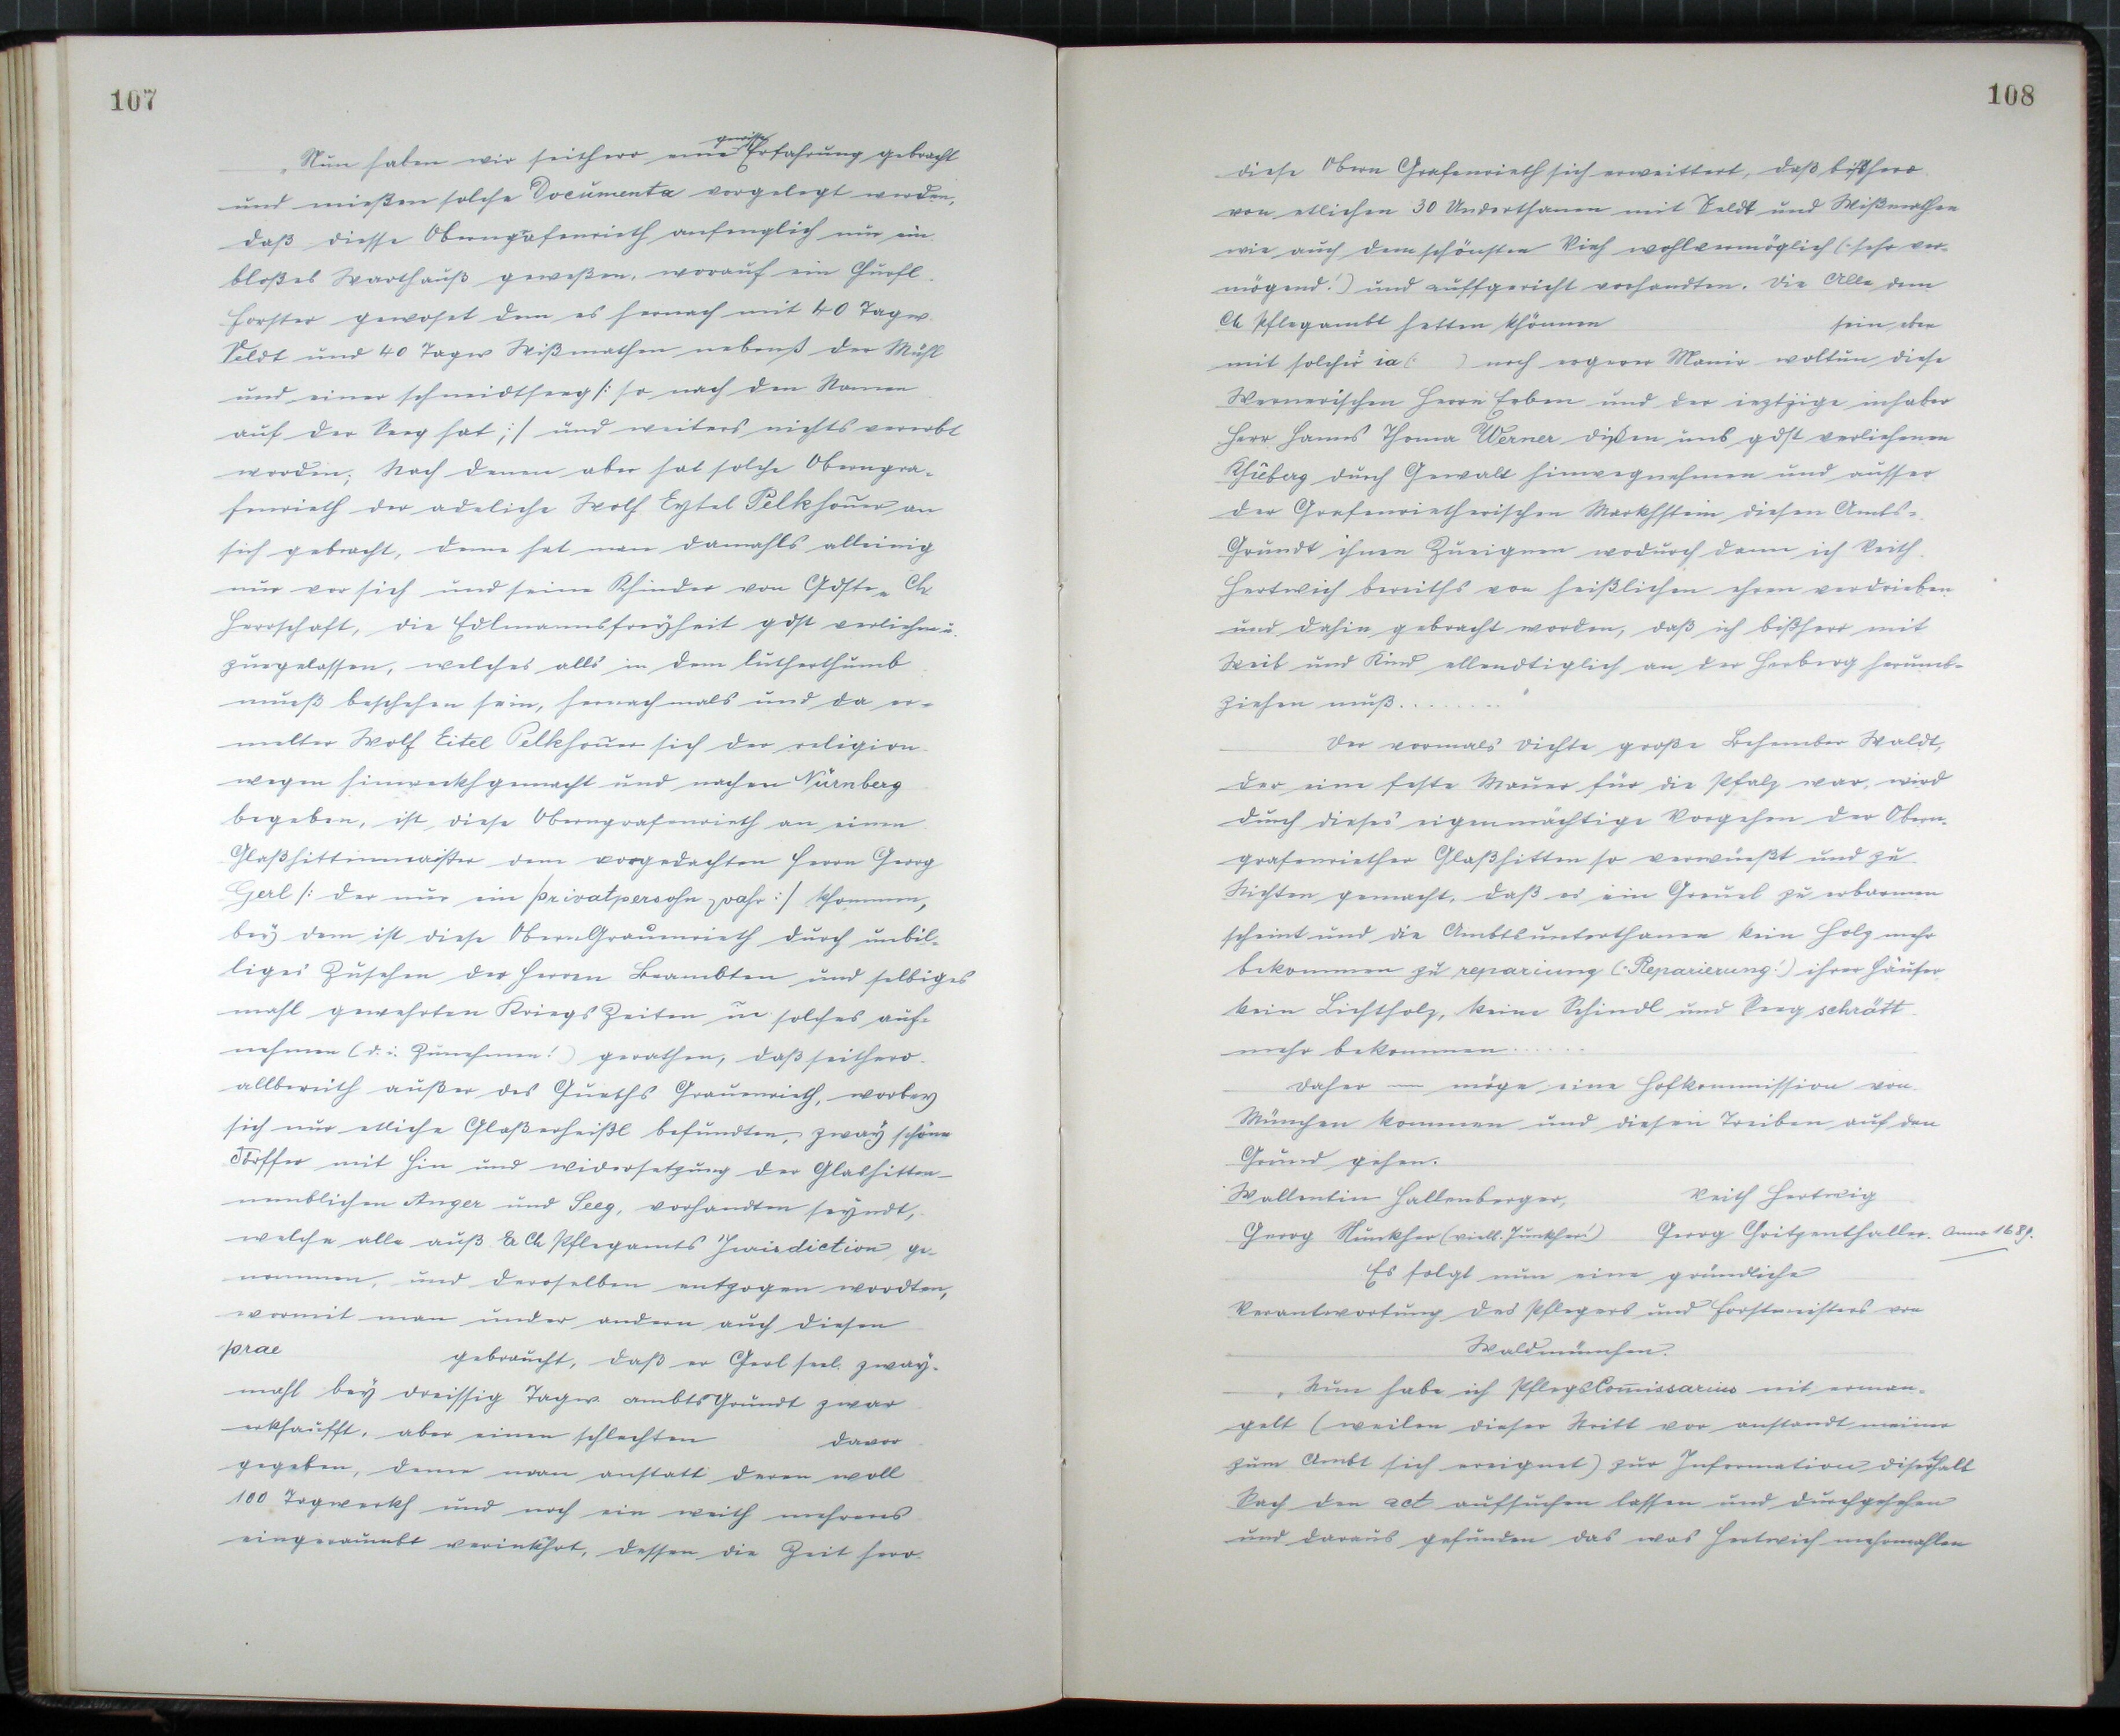 107
gewisse
„Nun haben wir seithero eine Erfahrung gebracht
und mießen solche Documenta vorgelegt werden,
daß diesse Oberngrafenrieth anfenglich nur ein
bloßes Warthauß geweßen, worauf ein Churfl.
Forster gewohet dem es hernach mit 40 Tagw.
Veldt und 40 Tagw Wißmathen nebenst der Mühl
und einer schneidtseeg /: so nach den Namen
auf der Seeg hat :/ und weiters nichts vererbt
worden; Nach denen aber hat solche Oberngra-
fenrieth der adeliche Wolf Eytel Pelkhouer an
sich gebracht, deme hat man damahls alleinig
nur vor sich und seine Khinder von Gdste Ch
Herrschaft, die Edlmannsfreyheit gdst verliehn u.
zuegelassen, welches alls in dem lutherthumb
mueß beschehen sein, hernachmals und da er-
melter Wolf Eitel Pelkhouer sich der religion
wegen hinweckhgemacht und nachen Nürnberg
begeben, ist diese Oberngrafenrieth an einen
Glaßhittenmaister dem vorgedachten Herrn Georg
Gerl /: der nur ein privatpersohn wahr :/ khommen,
bey dem ist diese Obern Grauenrieth durch unbil-
liges Zusehen der Herren Beambten und selbiges
mahl gewehrten Kriegs Zeiten in solches auf-
nehmen (d. i. Zunehmen!) gerathen, daß seithero
allbereith außer des Gueths Grauenrieth, worbey
sich nur etliche Glaßerheißl befundten, zway schöne
Dörffer mit hin und widersetzung der Glashitten
nemblichen Anger und Seeg, vorhandten seyndt,
welche alle auß & Ch Pflegamts Jurisdiction ge-
nommen, und derselben entzogen wordten,
wormit man under andern auch diesen
prae gebraucht, daß er Gerl seel. zway-
mahl bey dreissig Tagw. ambts Grundt zwar
erkhaufft, aber einen schlechten davor
gegeben, deme man anstatt deren woll
100 Tagwerkh und noch ein weith mehrers
eingeraumbt verinkhet, dessen die Zeit hero
108
diese Obern Grafenrieth sich erweittert, daß bißhero
von etlichen 30 Underthanen mit Veldt und Wißmathen
wie auch dem schönsten Vieh wohlvermöglich (: sehr ver-
mögend!) und auffgericht vorhandten. Die Alle dem
Ch Pflegambt hetten khönnen sein, eben
mit solcher ia (: ) noch ergerer Manir woltun diese
Wernerischen Herrn Erben und der ieztzige inhaber
Herr Hanns Thoma Werner dißen uns gdst verliehenen
Khüberg durch Gewalt hinwegnehmen und ausser
der Grafenrietherischen Markhstein diesen Ambts-
Grundt ihnen Zueignen wodurch dann ich Veith
Hertwich bereiths von heißlichen ehren verdrieben
und dahin gebracht worden, daß ich bißhero mit
Weib und Kind ellendtiglich an der Herberg herumb-
ziehen muß........"
Der vormals dichte große Behember Waldt,
der eine feste Mauer für die Pfalz war, wird
durch dieses eigenmächtige Vorgehen der Obern-
grafenriether Glaßhitten so verwüeßt und zu
Nichten gemacht, daß es ein Greuel zu erbarmen
scheint und die Ambtsunterthanen kein Holz mehr
bekommen zu repariung (: Reparierung!) ihrer Häuser
kein Lichtholz, keine Schindl und Seeg schrätt
mehr bekommen......
Daher — möge eine Hofkommission von
München kommen und diesen Treiben auf den
Grund gehen.
Wallentin Hallenberger, Veith Hertwig
Georg Nunkher (viell. Junkher!) Georg Chritzenthaller. Anno 1689.
Es folgt nun eine gründliche
Verantwortung des Pflegers und Forstmeisters von
Waldmünchen.
„Nun habe ich PflegsCom̄issarius nit erman-
gelt (weilen dieser Stritt vor anstandt meiner
zum Ambt sich ereignet) zur Information diserthalb
Nach den act aufsuchen lassen und durchgesehen
und daraus gefunden das was Hertwich mehrmahlen